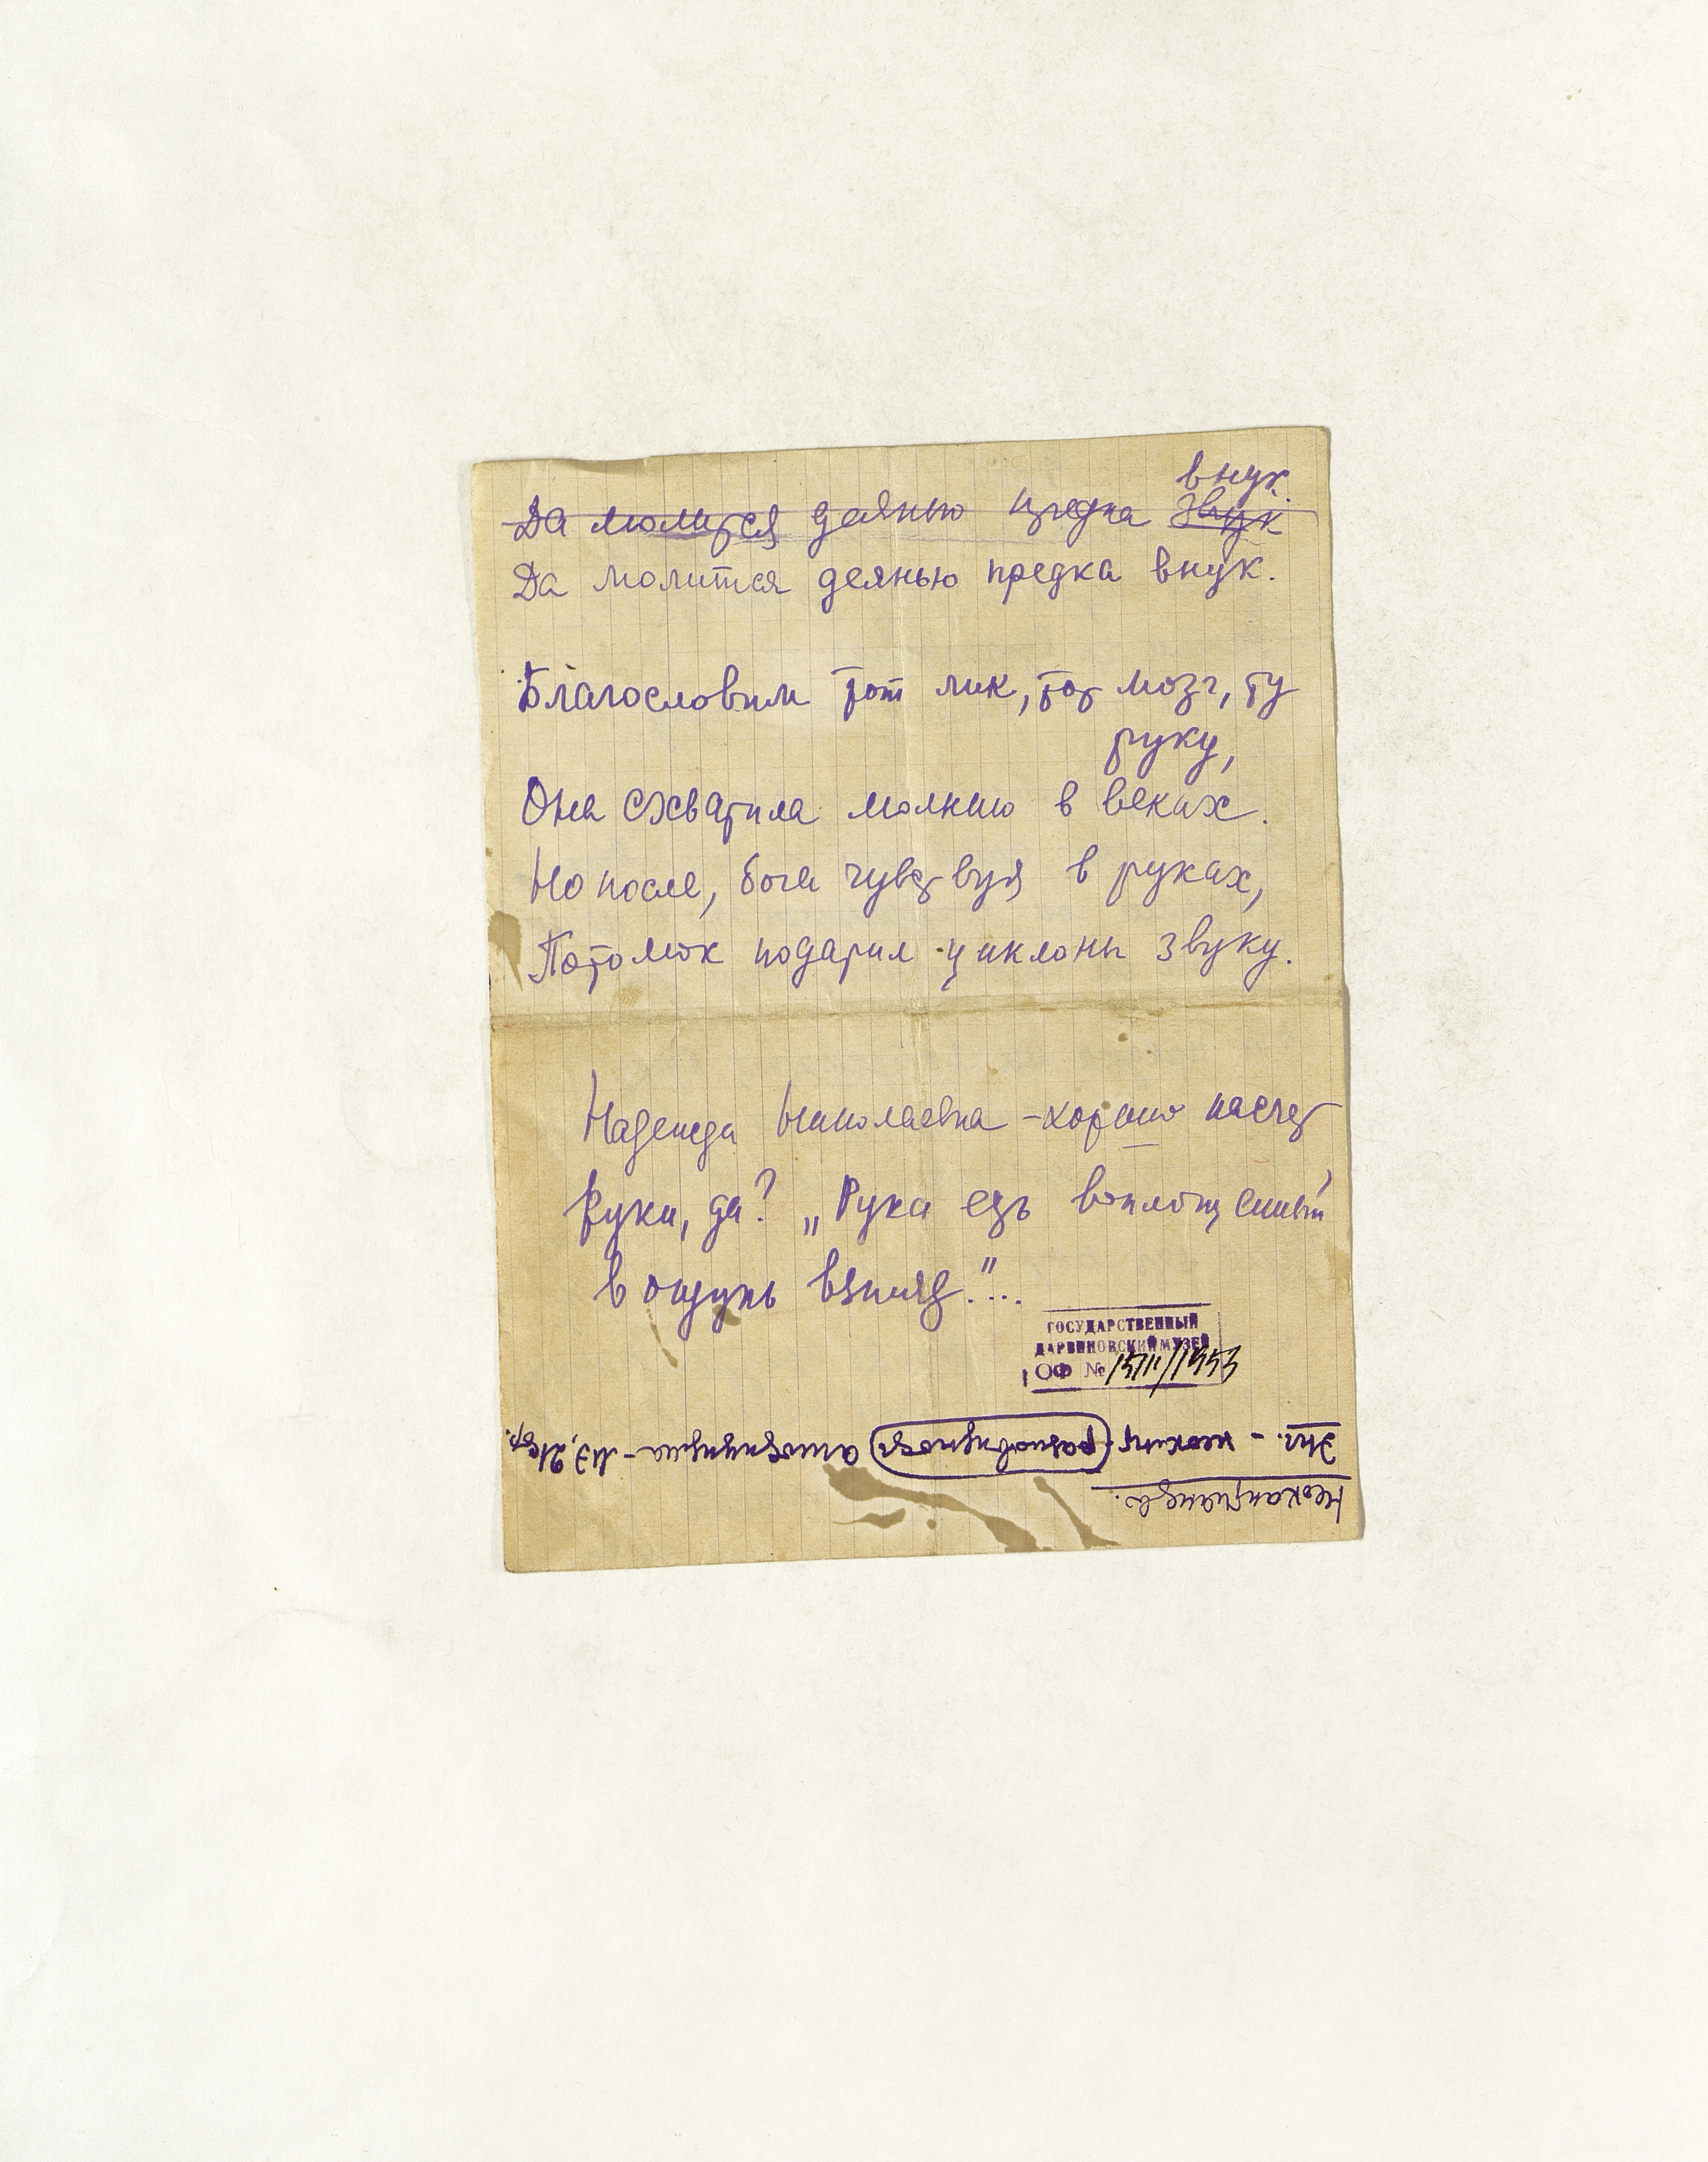 внук.
Да молится деянью предка звук
Да молится деянью предка внук.
Благословим тот лик, тот мозг, ту
руку,
Она схватила молнию в веках.
Но после, бога чувствуя в руках,
Потомок подарил циклоны звуку.
Надежда Николаевна – хорошо насчет
руки, да? „Рука есть воплощенный
в ощупь взгляд."...
ГОСУДАРСТВЕННЫЙ
ДАРВИНОВСКИЙ МУЗЕЙ
ОФ №
Неокантианцев.
Энг. – (разновидность) – МЭ, 21 стр.